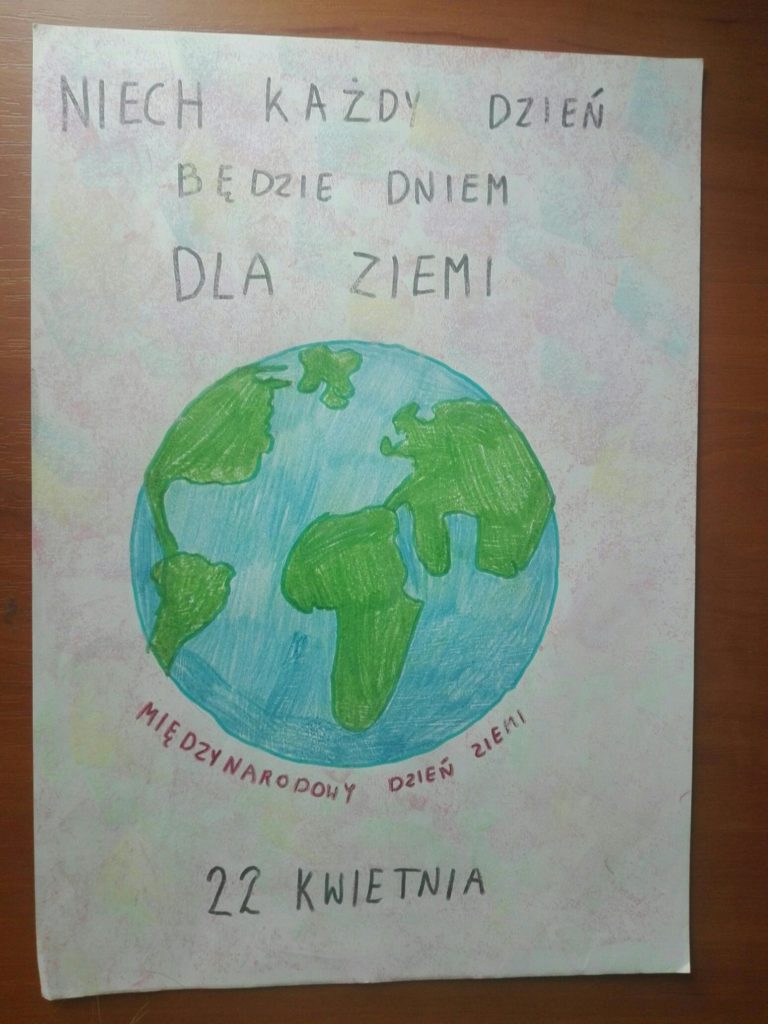 NIECH KAŻDY DZIEŃ
BĘDZIE DNIEM
DLA ZIEMI
MIĘDZYNARODOWY DZIEŃ ZIEMI
22 KWIETNIA